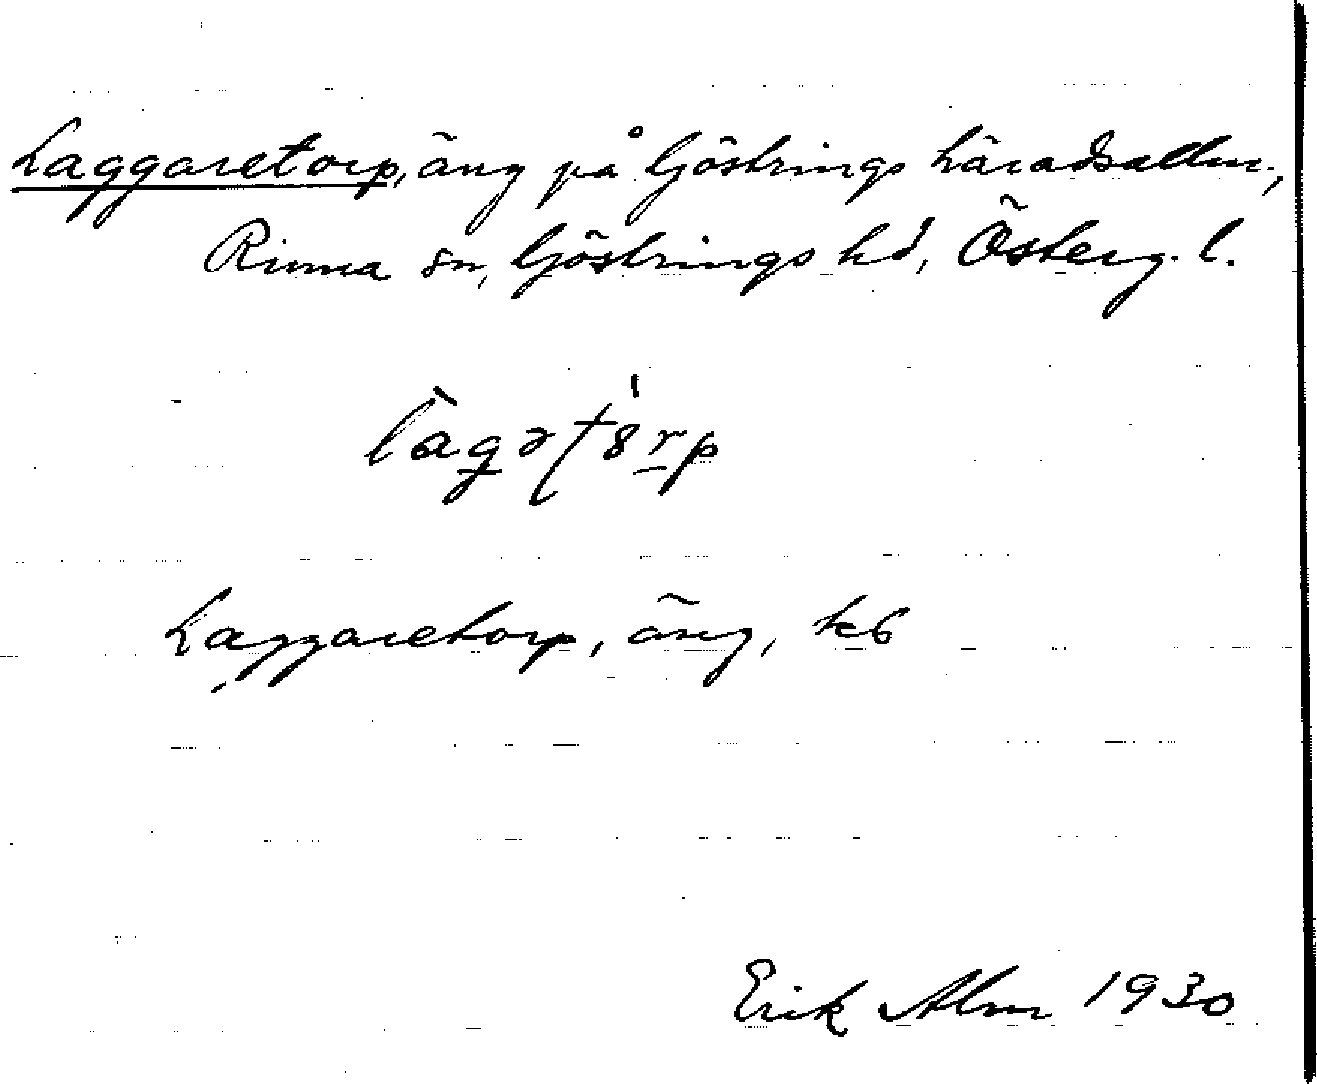 Laggaretorp, äng på Göstrings häradsallm.,
Rinna sn, Göstrings hd, Österg. l.
Laggaretorp, äng, kb
Erik Alm 1930